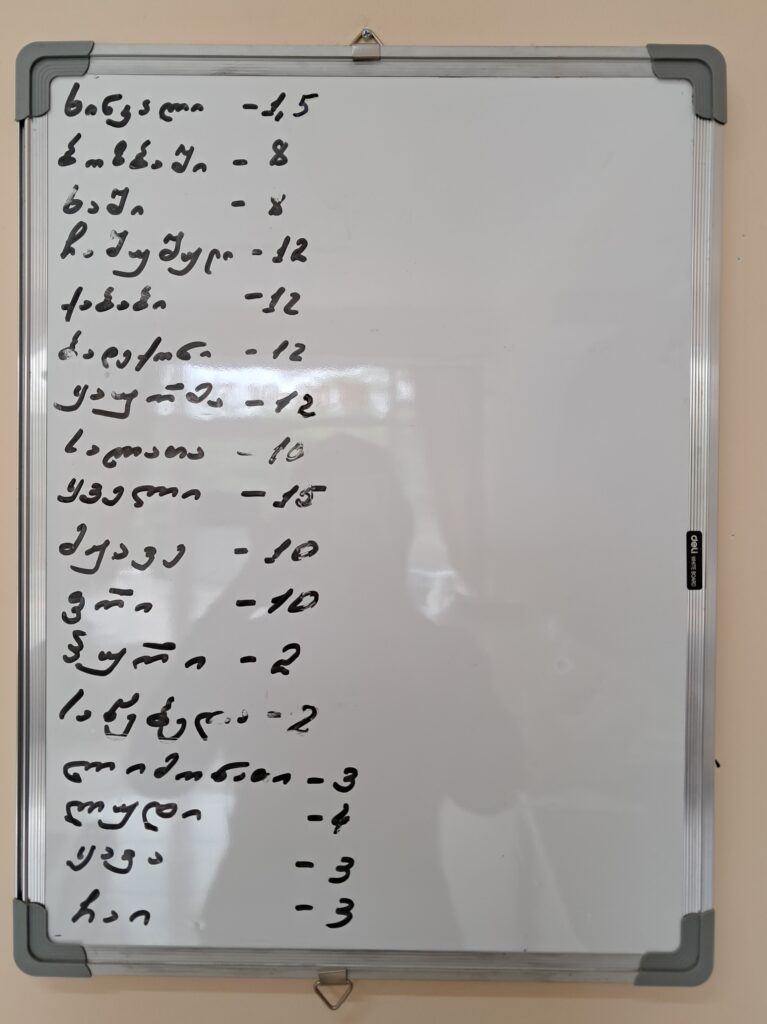 ხინკალი - 1,5
ბოზბაში - 8
ხაში - 8
ჩაშუშული - 12
ქაბაბი - 12
ბადექონი - 12
ყაურმა - 12
სალათა - 10
ყველი - 15
მჟავე - 10
ფრი - 10
პური - 2
საწებელა - 2
ლიმონათი - 3
ლუდი - 4
ყავა - 3
ჩაი - 3
deli WHITE BOARD